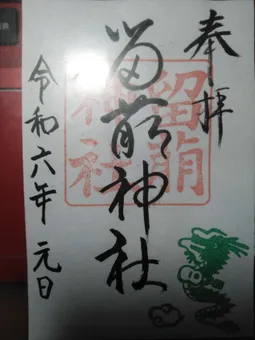 奉拝
留萌神社
留萌神社
令和六年 元日